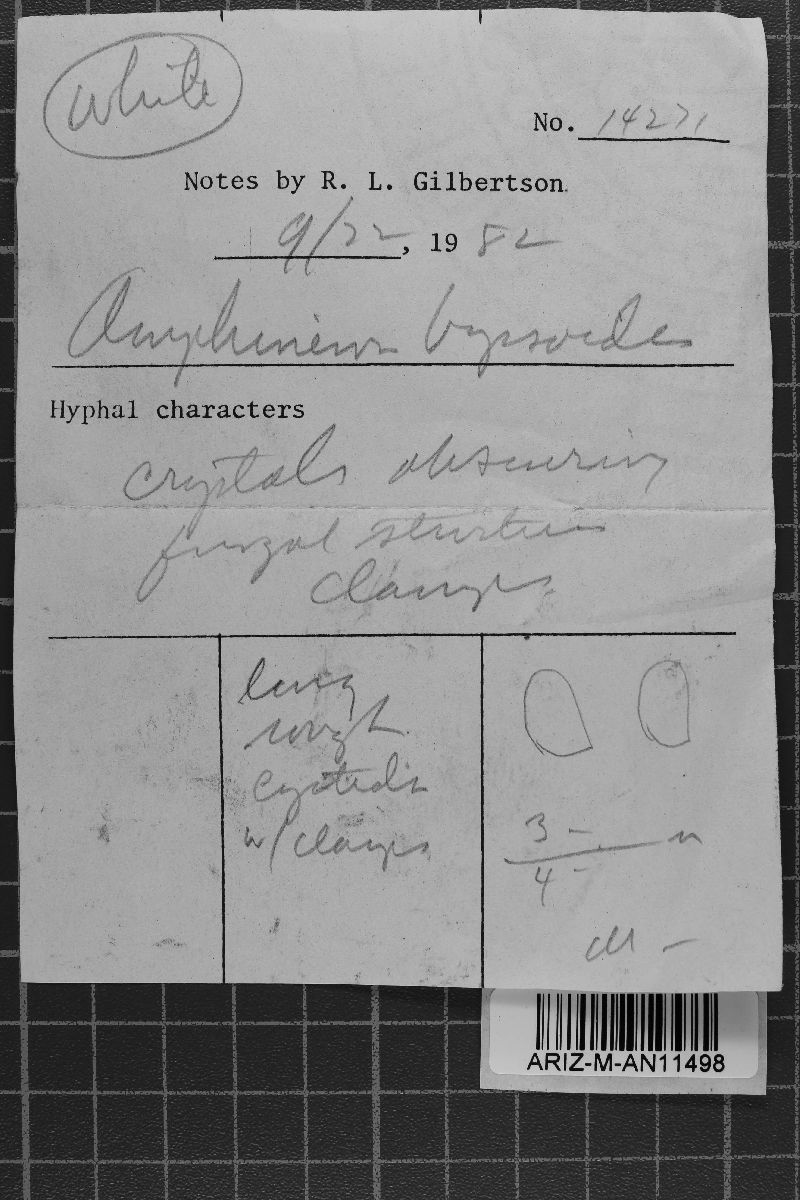 white
No. 14271
Notes by R. L. Gilbertson
9/22, 1982
Amphinema byssoides
Hyphal characters
crystals obscuring
fungal structures
clamps
long
rough
cystidia
w/ clamps
3 -
4 -
M -
ARIZ-M-AN11498